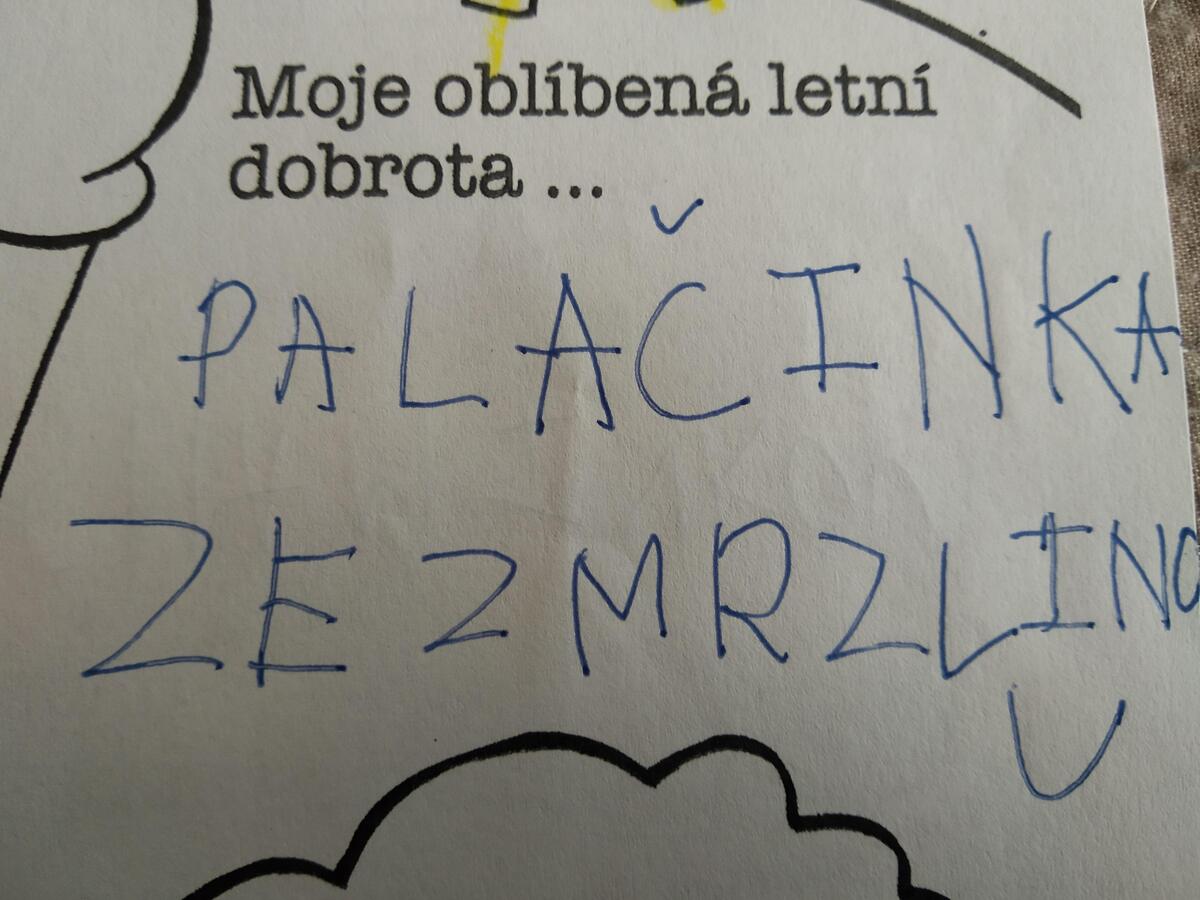 Moje oblíbená letní
dobrota ...
PALAČINKA
ZE ZMRZLINO
U